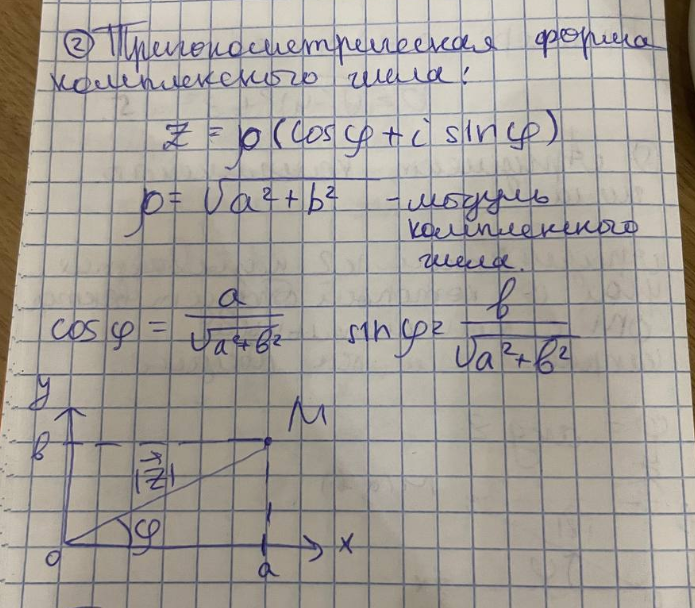 ② Тригонометрическая форма
комплексного числа:
z = ρ(cosφ + i sinφ)
ρ = √a² + b² - модуль
комплексного
числа.
cosφ = a / √a²+b² sinφ = b / √a²+b²
y
M
b
|z⃗|
φ
0
a
x